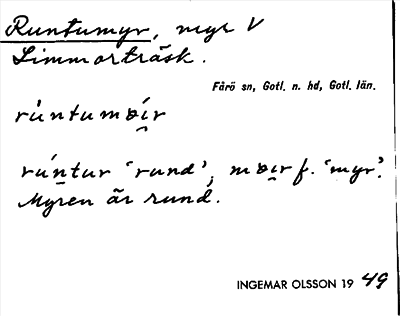 Runtumyr, myr V
Limmorträsk.
Fårö sn, Gotl. n. hd, Gotl. län.
rúntumɒi̯r
rúntur 'rund', mɒi̯r f. 'myr'.
Myren är rund.
INGEMAR OLSSON 19 49